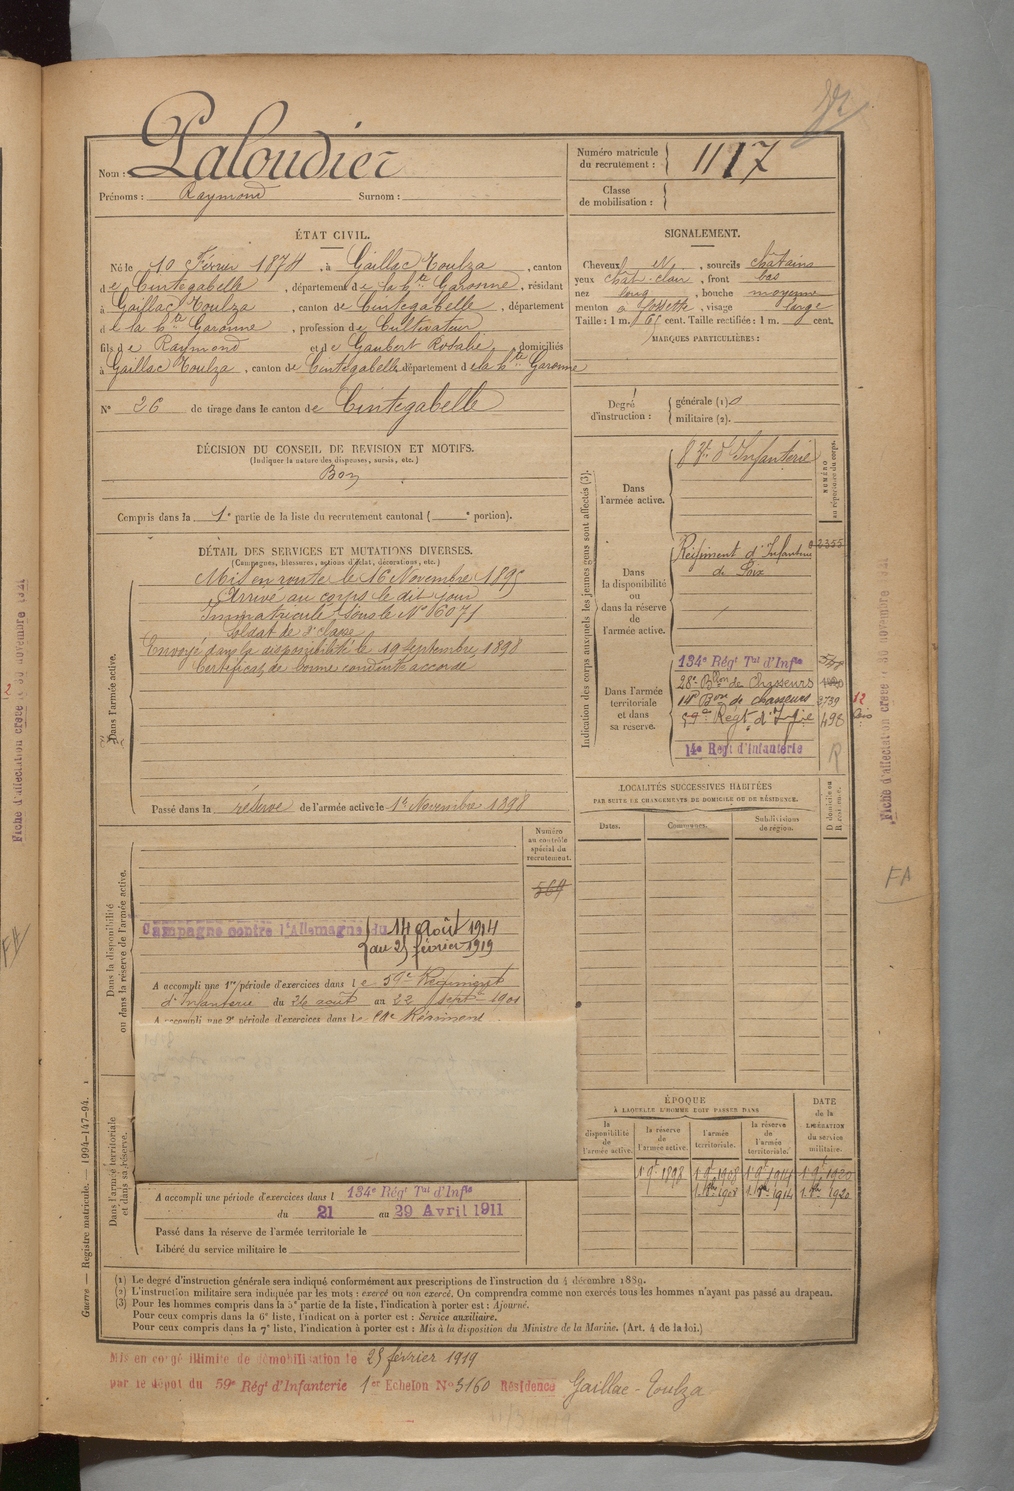 Nom : Paloudier
Prénoms : Raymond Surnom :
Numéro matricule du recrutement : 1117
Classe de mobilisation :
ÉTAT CIVIL.
Né le 10 Février 1874, à Gaillac Toulza, canton
de Cintegabelle, département de la hte Garonne, résidant
à Gaillac Toulza, canton de Cintegabelle, département
de la hte Garonne, profession de Cultivateur
fils de Raymond et de Gaubert Rosalie, domiciliés
à Gaillac Toulza, canton de Cintegabelle, département de la hte Garonne
N° 26 de tirage dans le canton de Cintegabelle
SIGNALEMENT.
Cheveux, sourcils châtains
yeux chât-clair, front bas
nez long, bouche moyenne
menton à fossette, visage large
Taille : 1 m. 61 cent. Taille rectifiée : 1 m. cent.
MARQUES PARTICULIÈRES :
Degré d'instruction : générale (1) 0
militaire (2).
DÉCISION DU CONSEIL DE REVISION ET MOTIFS.
(Indiquer la nature des dispenses, sursis, etc.)
Bon
Compris dans la 1e partie de la liste du recrutement cantonal ( e portion).
DÉTAIL DES SERVICES ET MUTATIONS DIVERSES.
(Campagnes, blessures, actions d'éclat, décorations, etc.)
Dans l'armée active.
Mis en route le 16 Novembre 1895
Arrivé au corps le dit jour
Immatriculé sous le N° 16071
Soldat de 2e classe
Envoyé dans la disponibilité le 19 Septembre 1898
Certificat de bonne conduite accordé
Passé dans la réserve de l'armée active le 1er Novembre 1898
Indication des corps auxquels les jeunes gens sont affectés (3).
NUMÉRO au répertoire du corps.
Dans l'armée active.
d'Infanterie
Dans la disponibilité ou dans la réserve de l'armée active.
Régiment d'Infanterie 02355
de Foix
Dans l'armée territoriale et dans sa réserve.
134e Régt Tal d'Infie
28e Bon de Chasseurs
14e Bon de chasseurs 2739
59e Régt d'Infie 498
14e Regt d'Infanterie
R
LOCALITÉS SUCCESSIVES HABITÉES
PAR SUITE DE CHANGEMENTS DE DOMICILE OU DE RÉSIDENCE.
Dates. Communes. Subdivisions de région. D domicile ou R résidence.
Numéro au contrôle spécial du recrutement.
569
Dans la disponibilité ou dans la réserve de l'armée active.
Campagne contre l'Allemagne du 14 Août 1914
au 25 février 1919
A accompli une 1re période d'exercices dans le 59e Régiment
d'Infanterie du 26 août au 22 Septre 1901
A accompli une 2e période d'exercices dans le Régiment
Dans l'armée territoriale et dans sa réserve.
A accompli une période d'exercices dans l 134e Régt Tal d'Infie
du 21 au 29 Avril 1911
Passé dans la réserve de l'armée territoriale le
Libéré du service militaire le
ÉPOQUE
À LAQUELLE L'HOMME DOIT PASSER DANS
DATE de la LIBÉRATION du service militaire.
la disponibilité de l'armée active. la réserve de l'armée active. l'armée territoriale. la réserve de l'armée territoriale.
1 9bre 1898 1 9bre 1908 1 9bre 1914 1 9bre 1920
(1) Le degré d'instruction générale sera indiqué conformément aux prescriptions de l'instruction du 4 décembre 1889.
(2) L'instruction militaire sera indiquée par les mots : exercé ou non exercé. On comprendra comme non exercés tous les hommes n'ayant pas passé au drapeau.
(3) Pour les hommes compris dans la 5e partie de la liste, l'indication à porter est : Ajourné.
Pour ceux compris dans la 6e liste, l'indication à porter est : Service auxiliaire.
Pour ceux compris dans la 7e liste, l'indication à porter est : Mis à la disposition du Ministre de la Marine. (Art. 4 de la loi.)
Mis en congé illimité de démobilisation le 25 février 1919
par le dépot du 59e Régt d'Infanterie 1er Echelon N° 5160 Résidence Gaillac-Toulza
Guerre — Registre matricule. — 1994-147-94.
FA